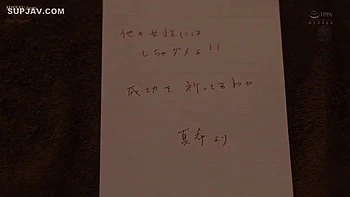 SUPJAV.COM
他の女性には
しちゃダメよ!!
成功を祈ってるわ
真希より